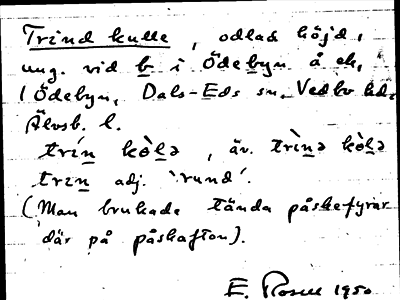 Trind kulle, odlad höjd,
ung. vid b i Ödebyn å ek,
1 Ödebyn, Dals-Eds sn. Vedbo hd.
Älvsb. l.
trín kòlə, äv. trìnə kòlə
trin adj. 'rund'.
(Man brukade tända påskefyrar
där på påskafton).
E. Rosell 1950